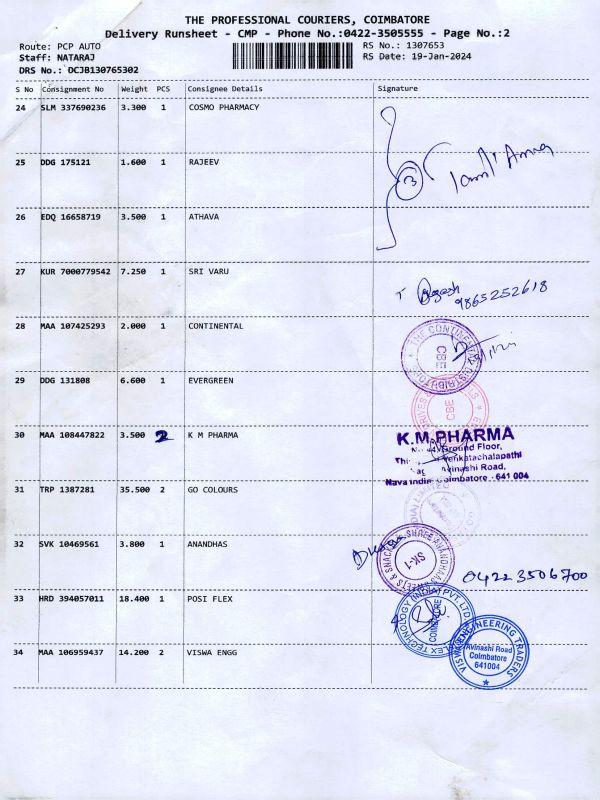 THE PROFESSIONAL COURIERS, COIMBATORE
Delivery Runsheet - CMP - Phone No.:0422-3505555 - Page No.:2
Route: PCP AUTO RS No.: 1307653
Staff: NATARAJ RS Date: 19-Jan-2024
DRS No.: DCJB130765302
S No Consignment No Weight PCS Consignee Details Signature
24 SLM 337690236 3.300 1 COSMO PHARMACY
25 DDG 175121 1.600 1 RAJEEV
26 EDQ 16658719 3.500 1 ATHAVA
27 KUR 7000779542 7.250 1 SRI VARU
9865252618
28 MAA 107425293 2.000 1 CONTINENTAL
THE CONTINENTAL DISTRIBUTORS
CBE
29 DDG 131808 6.600 1 EVERGREEN
CBE
30 MAA 108447822 3.500 2 K M PHARMA
K.M.PHARMA
Ground Floor,
Venkatachalapathi
Avinashi Road,
Nava India Coimbatore - 641 004
31 TRP 1387281 35.500 2 GO COLOURS
32 SVK 10469561 3.800 1 ANANDHAS
SHREE ANANDHAAS SWEETS & SNACKS
SK-1
04223506700
33 HRD 394057011 18.400 1 POSI FLEX
FLEX TECHNOLOGY (INDIA) PVT. LTD.
COIMBATORE
34 MAA 106959437 14.200 2 VISWA ENGG
VISWA ENGINEERING TRADERS
Avinashi Road
Coimbatore
641004